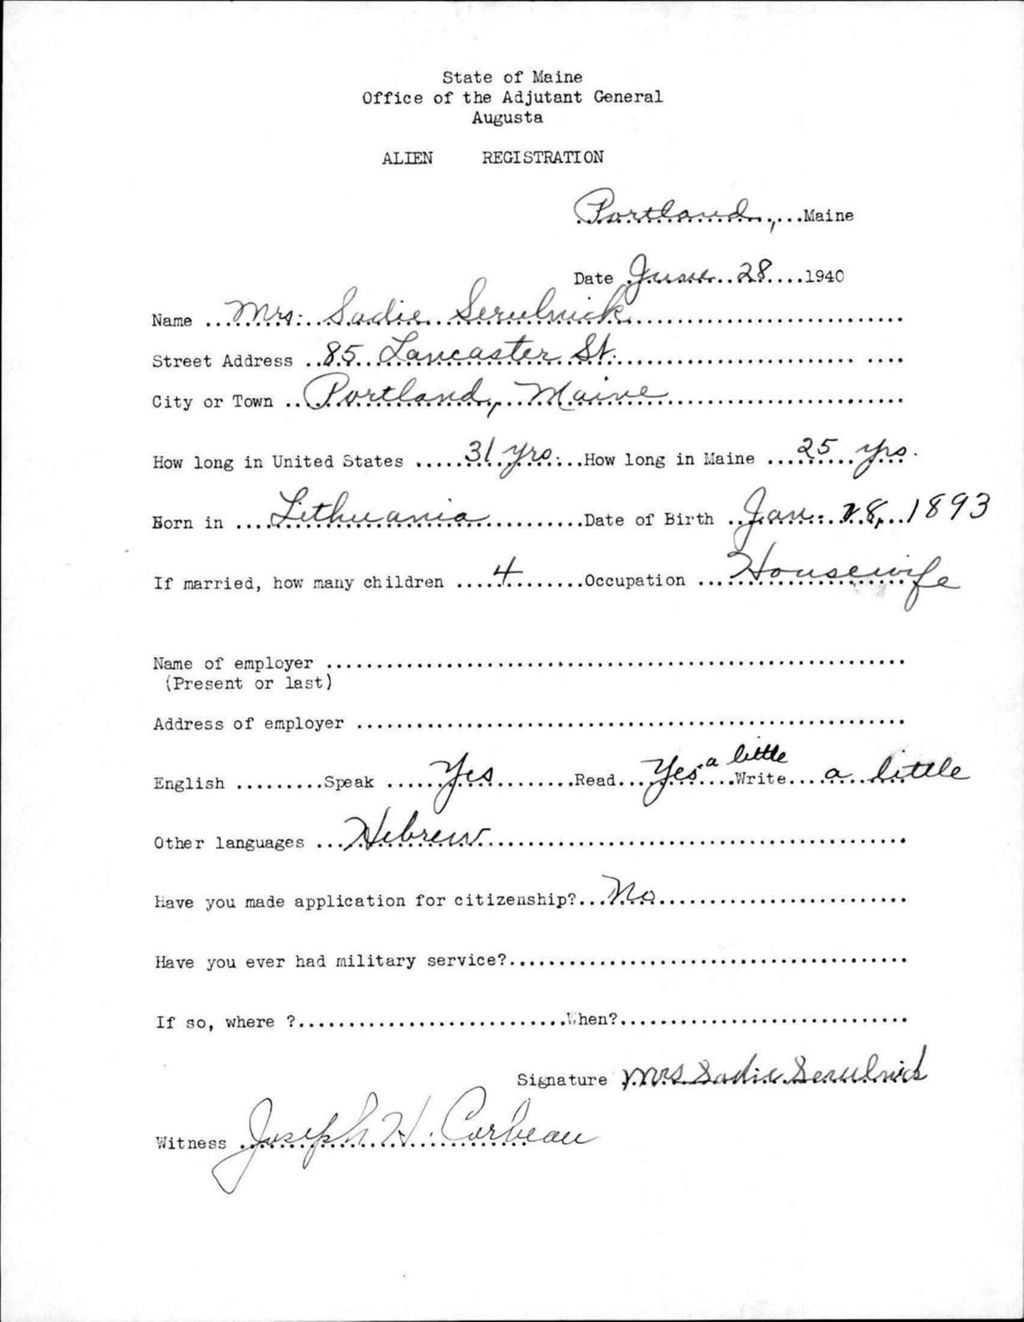 State of Maine
Office of the Adjutant General
Augusta
ALIEN REGISTRATION
Portland, Maine
Date June 28 1940
Name Mrs. Sadie Serulnick
Street Address 85 Lancaster St.
City or Town Portland, Maine
How long in United States 31 yrs. How long in Maine 25 yrs.
Born in Lithuania Date of Birth Jan. 28, 1893
If married, how many children 4 Occupation Housewife
Name of employer
(Present or last)
Address of employer
English Speak Yes Read Yes a little Write a little
Other languages Hebrew
Have you made application for citizenship? No
Have you ever had military service?
If so, where ? When?
Signature Mrs Sadie Serulnick
Witness Joseph H. Corbeau